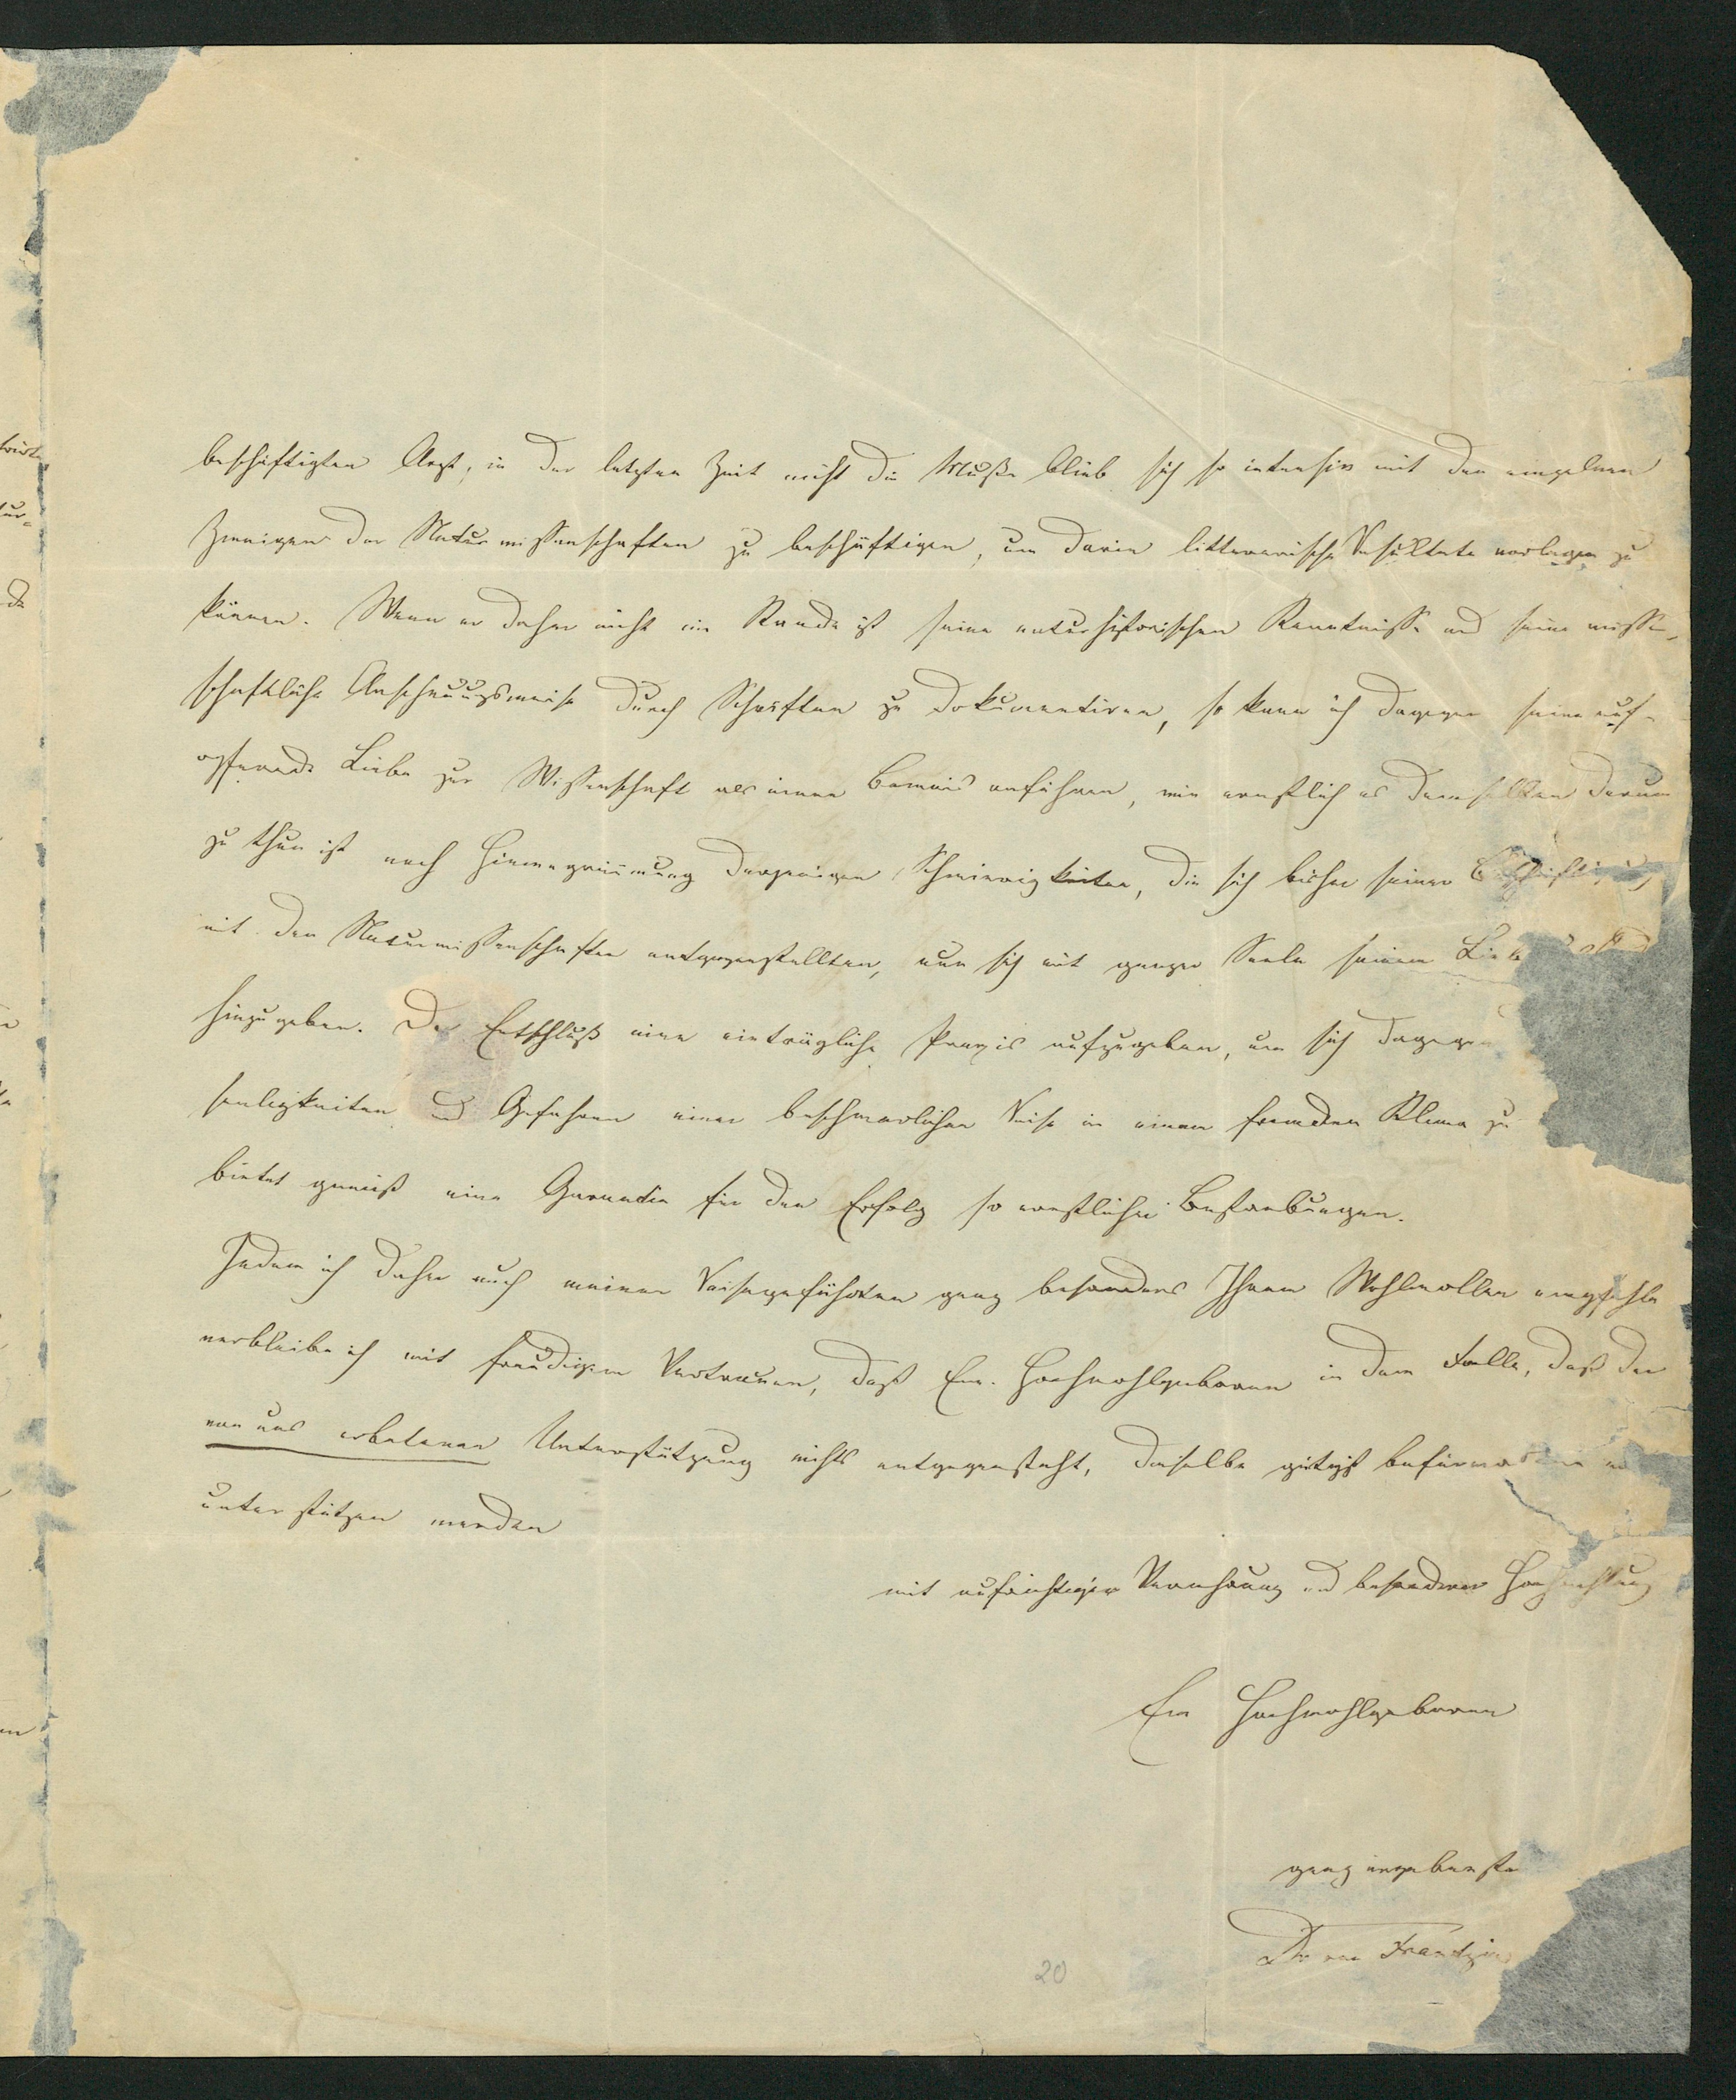 beschäftigten Arzt, in der letzten Zeit nicht die Muße blieb sich so intensiv mit den einzelnen
Zweigen der Naturwissenschaften zu beschäftigen, um darin litterarische Resultate vorlegen zu
können. Wenn er daher nicht im Stande ist seine naturhistorischen Kenntnisse und seine wissen-
schaftliche Anschauungsweise durch Schriften zu dokumentiren, so kann ich dagegen seine auf-
opfernde Liebe zur Wissenschaft als einen Beweis anführen, wie ernstlich es demselben darum
zu thun ist nach Hinwegräumung derjenigen Schwierigkeiten, die sich bisher seiner Beschäftigung
mit den Naturwissenschaften entgegenstellten, nun sich mit ganzer Seele seinem
hinzugeben. Der Entschluß eine einträgliche Praxis aufzugeben, um sich dagegen
seeligkeiten und Gefahren einer beschwerlichen Reise in einem fremden Klima zu
bietet gewiß eine Garantie für den Erfolg so ernstlicher Bestrebungen.
Indem ich daher auch meinen Reisegefährten ganz besonders Ihrem Wohlwollen empfehle
verbleibe ich mit freudigem Vertrauen, daß Ew. Hochwohlgeboren in dem Falle, daß der
von uns erbetenen Unterstützung nichts entgegensteht, dieselbe gütigst befürworten
unterstützen werden
mit aufrichtiger Verehrung und besonderer Hochachtung
Ew Hochwohlgeboren
ganz ergebenster
Dr von Frantzius
20